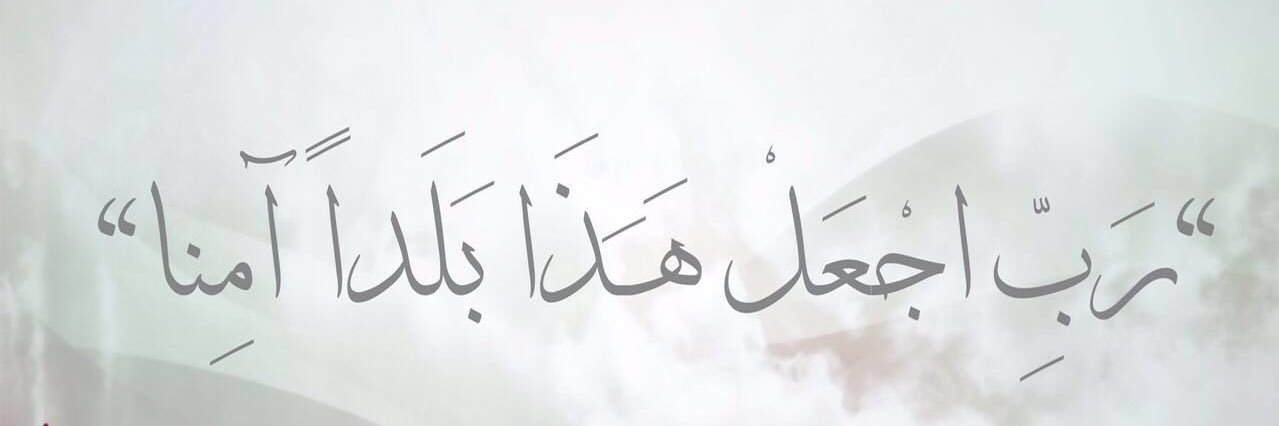 “رَبِّ اجْعَلْ هَذَا بَلَداً آمِنا“